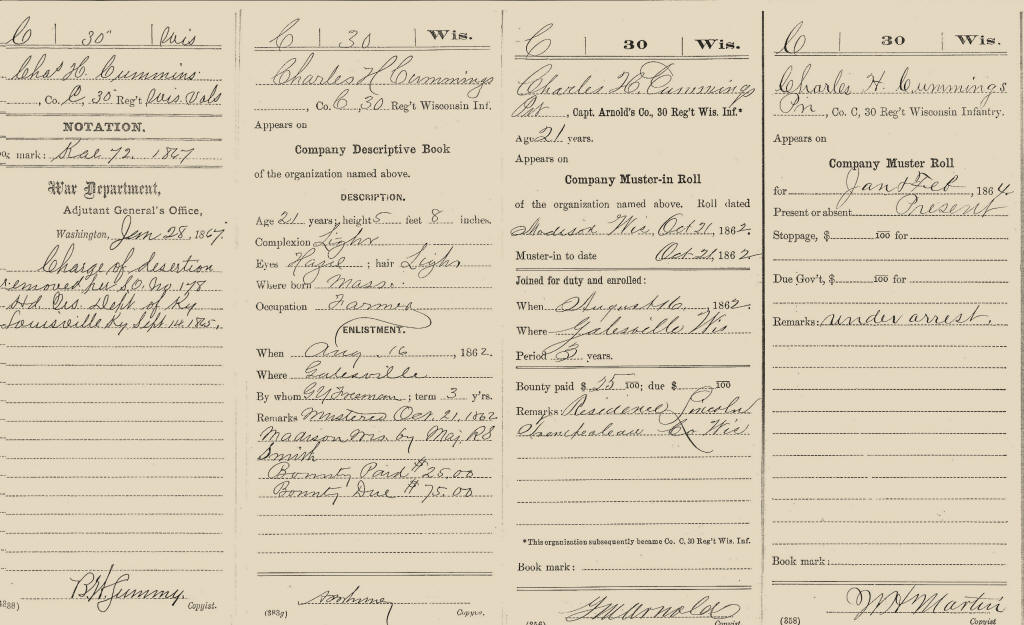 C | 30" | Wis
Chas H. Cummins.
, Co. C, 30 Reg't Wis. Vols
NOTATION.
mark: Rac 72. 1867
War Department,
Adjutant General's Office,
Washington, Jan 28, 1867.
Charge of desertion
removed per S.O. No. 178
Hd. Qrs. Dept. of Ky
Louisville Ky Sept 14. 1865.
Copyist.
C | 30 | Wis.
Charles H Cummings
, Co. C, 30 Reg't Wisconsin Inf.
Appears on
Company Descriptive Book
of the organization named above.
DESCRIPTION.
Age 21 years; height 5 feet 8 inches.
Complexion Light
Eyes Hazel ; hair Light
Where born Mass.
Occupation Farmer
ENLISTMENT.
When Aug. 16 , 1862.
Where Galesville
By whom G Y Freeman ; term 3 y'rs.
Remarks Mustered Oct. 21, 1862
Madison Wis. by Maj. R S
Smith
Bounty Paid $25.00
Bounty Due $75.00
(383g) Copyist.
C | 30 | Wis.
Charles H. Cummings
Pvt , Capt. Arnold's Co., 30 Reg't Wis. Inf.*
Age 21 years.
Appears on
Company Muster-in Roll
of the organization named above. Roll dated
Madison Wis, Oct 21, 1862.
Muster-in to date Oct. 21, 1862
Joined for duty and enrolled:
When August 16 , 1862.
Where Galesville Wis
Period 3 years.
Bounty paid $ 25 100; due $ 100
Remarks Residence Lincoln
Trempealeau Co Wis
*This organization subsequently became Co. C, 30 Reg't Wis. Inf.
Book mark:
G M Arnold
(356) Copyist.
C | 30 | Wis.
Charles H. Cummings
Pv , Co. C, 30 Reg't Wisconsin Infantry.
Appears on
Company Muster Roll
for Jan & Feb , 1864.
Present or absent Present
Stoppage, $ 100 for
Due Gov't, $ 100 for
Remarks: under arrest.
Book mark:
W H Martin
(358) Copyist.